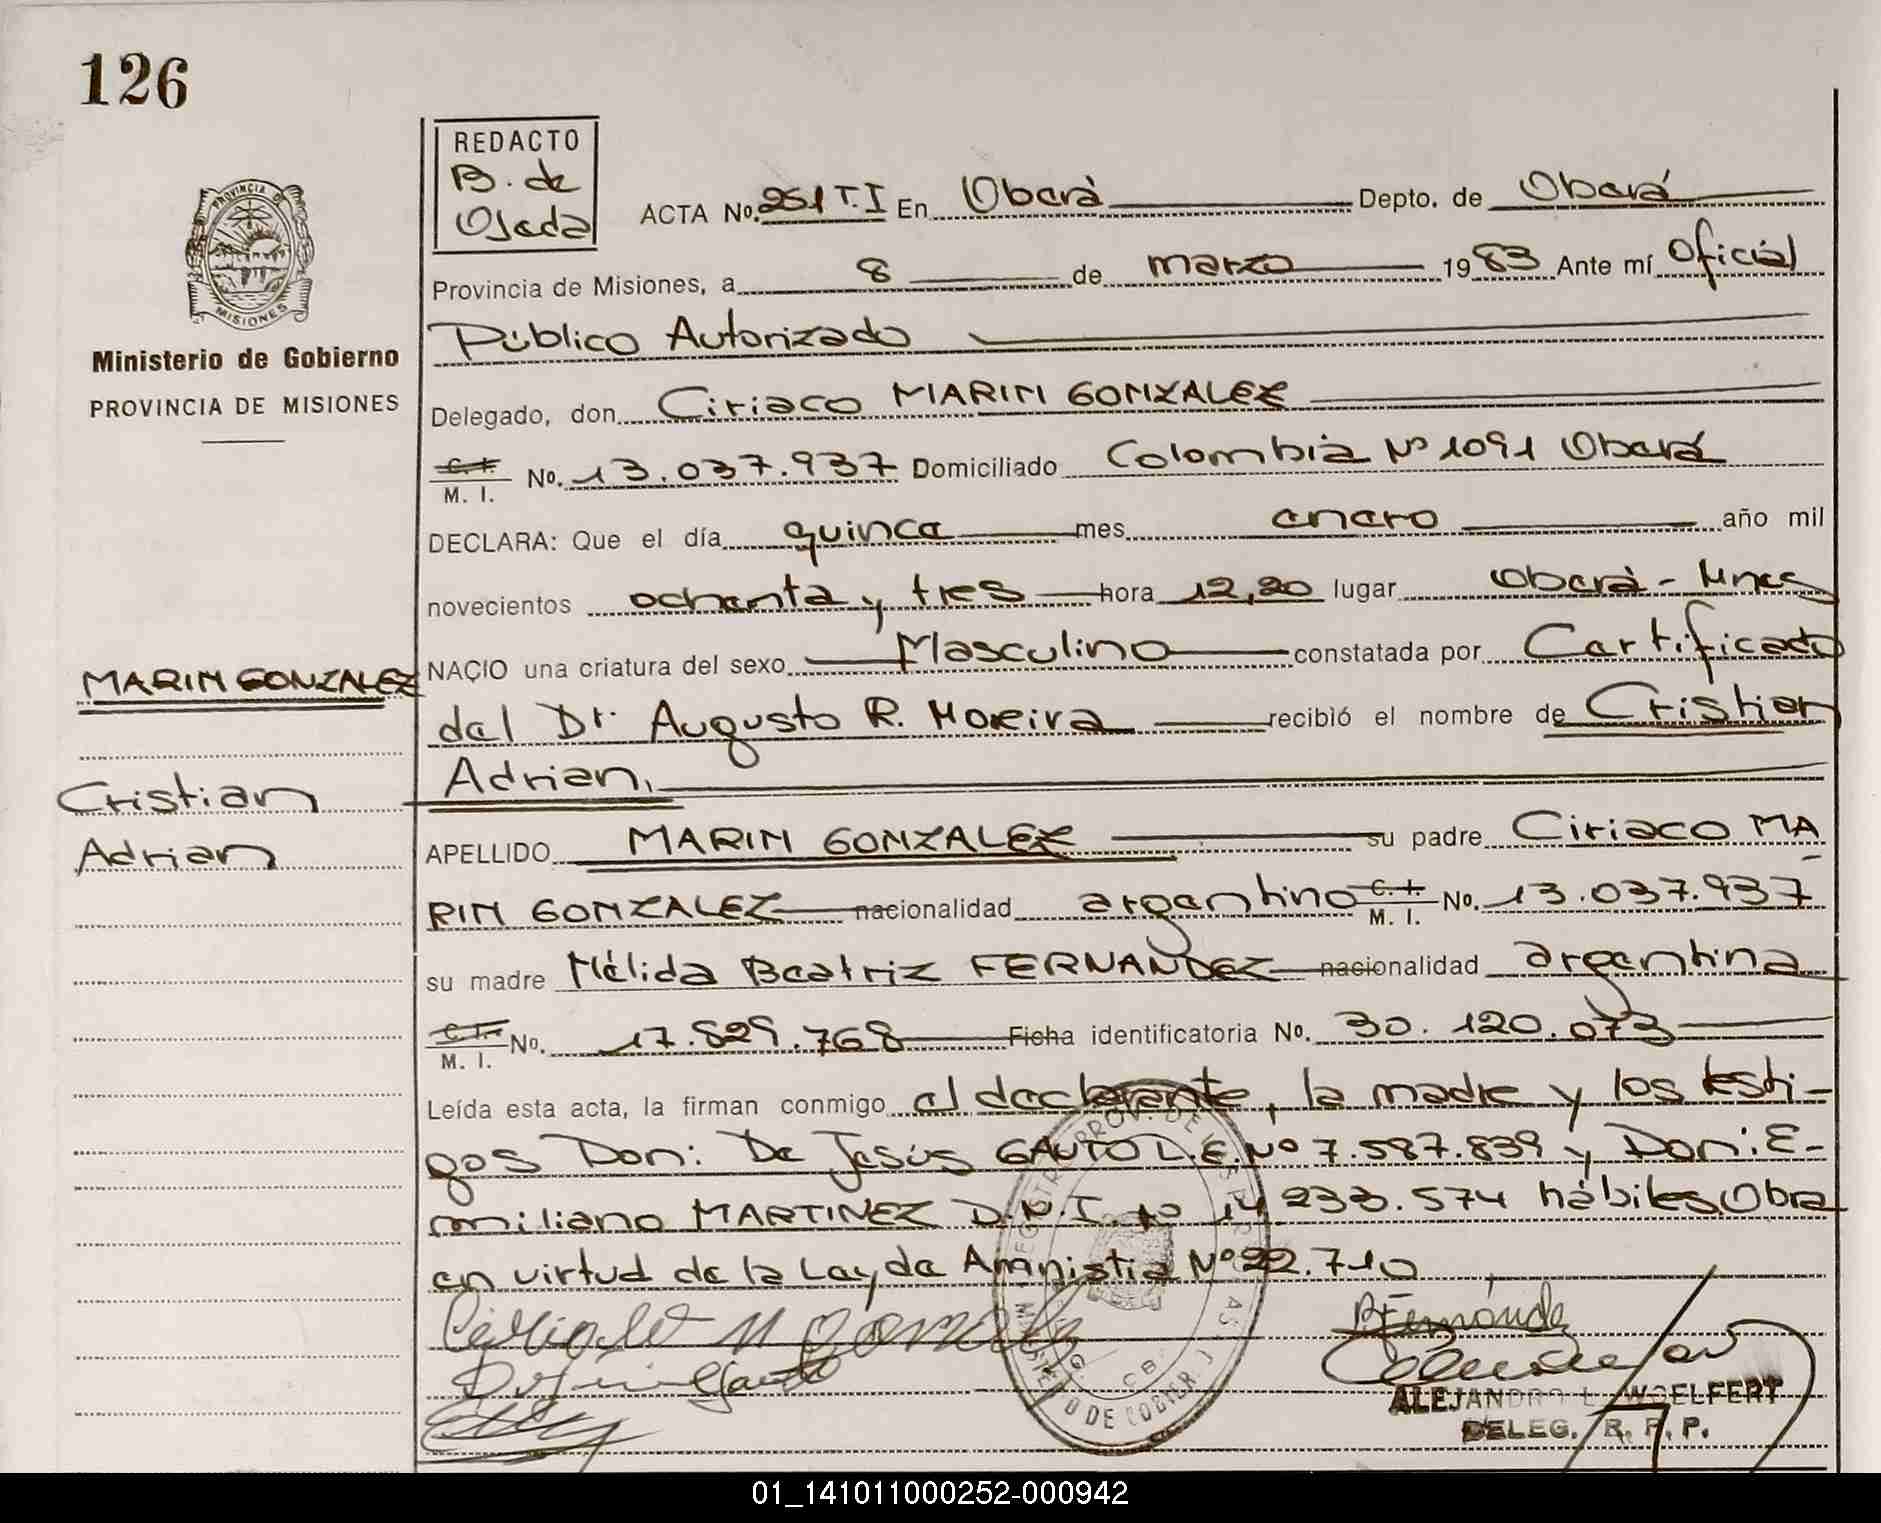 126
REDACTO
B. de
Ojeda
PROVINCIA DE
MISIONES
Ministerio de Gobierno
PROVINCIA DE MISIONES
ACTA No. 251 T.I En Oberá Depto. de Oberá
Provincia de Misiones, a 8 de marzo 1983 Ante mí Oficial
Público Autorizado
Delegado, don Ciriaco MARIN GONZALEZ
C. I. M. I. No. 13.037.937 Domiciliado Colombia Nº 1091 Oberá
DECLARA: Que el día quince mes enero año mil
novecientos ochenta y tres hora 12,20 lugar Oberá - Mnes
NACIO una criatura del sexo Masculino constatada por Certificado
del Dr. Augusto R. Moreira recibió el nombre de Cristian
Adrian.
MARIN GONZALEZ
Cristian
Adrian
APELLIDO MARIN GONZALEZ su padre Ciriaco MA
RIN GONZALEZ nacionalidad argentino C. I. M. I. No. 13.037.937
su madre Nélida Beatriz FERNANDEZ nacionalidad argentina
C. I. M. I. No. 17.829.768 Ficha identificatoria No. 30.120.073
Leída esta acta, la firman conmigo el declarante, la madre y los testi-
gos Don: De Jesús GAUTO L.E. Nº 7.587.839 y Don: E-
miliano MARTINEZ D.N.I. Nº 14.233.574 hábiles. Obra
en virtud de la Ley de Amnistia Nº 22.710
ALEJANDRO L. WOELFERT
DELEG. R. P. P.
01_141011000252-000942